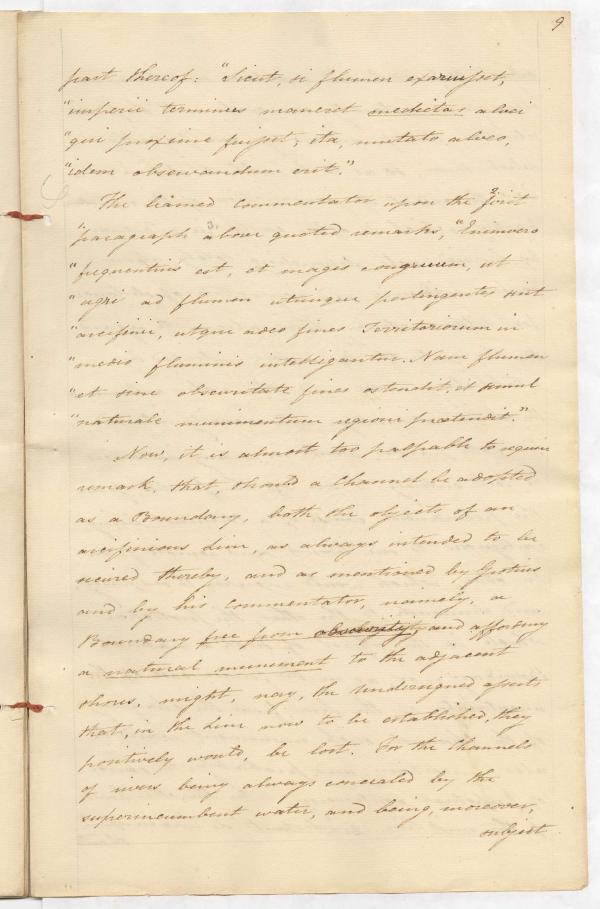 9
part thereof: "Sicut, si flumen exaruisset,
"imperii terminus maneret medietas alvei
"qui proxime fuisset; ita, mutato alveo,
"idem observandum erit."
The learned commentator upon the first 2.
"paragraph above 3. quoted remarks, "Enimvero
"frequentius est, et magis congruum, ut
"agri ad flumen utrinque pertingentes sint
"arcifinii, utque adeo fines Territoriorum in
"medio fluminis intelligantur. Nam flumen
"et sine obscuritate fines ostendit, et simul
"naturale munimentum regioni praetendit."
Now, it is almost too palpable to require
remark, that, should a Channel be adopted
as a Boundary, both the objects of an
arcifinious Line, as always intended to be
secured thereby, and as mentioned by Grotius
and by his commentator, namely, a
Boundary free from obscurity, and affording
a natural muniment to the adjacent
shores, might, nay, the Undersigned asserts
that, in the Line now to be established, they
positively would, be lost. For the Channels
of rivers being always concealed by the
superincumbent water, and being, moreover,
subject